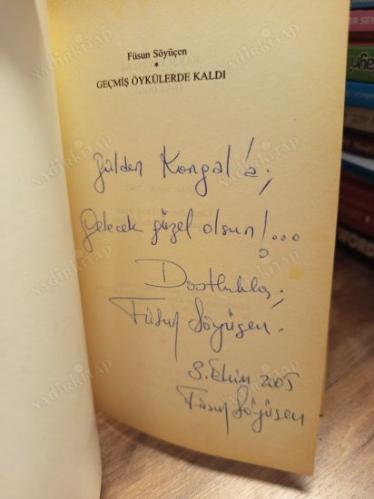 Füsun Söyüçen
*
GEÇMİŞ ÖYKÜLERDE KALDI
Gülden Kongal'a;
Gelecek güzel olsun!...
Dostlukla;
Füsun Söyüçen.
8. Ekim 2005
Füsun Söyüçen
nadirkitap